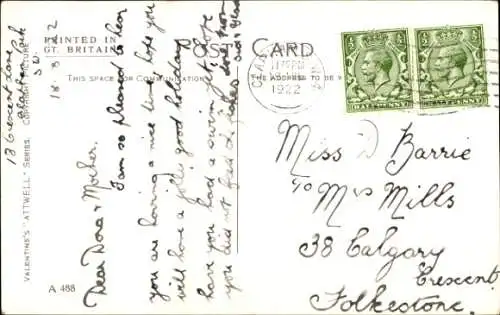 PRINTED IN
GT. BRITAIN
POST CARD
THIS SPACE FOR COMMUNICATION
THE ADDRESS TO BE
1922
HALFPENNY
HALFPENNY
VALENTINE'S "ATTWELL" SERIES.
A 488
136 Crescent Lane
Clapham Park
S.W.
18.8.22
Dear Dora & Mother.
I am so pleased to hear
you are having a nice time, hope you
will have a jolly good holiday
have you had a swim yet, hope
you did not
love from
Miss D Barrie
To Mrs Mills
38 Calgary
Crescent
Folkestone.